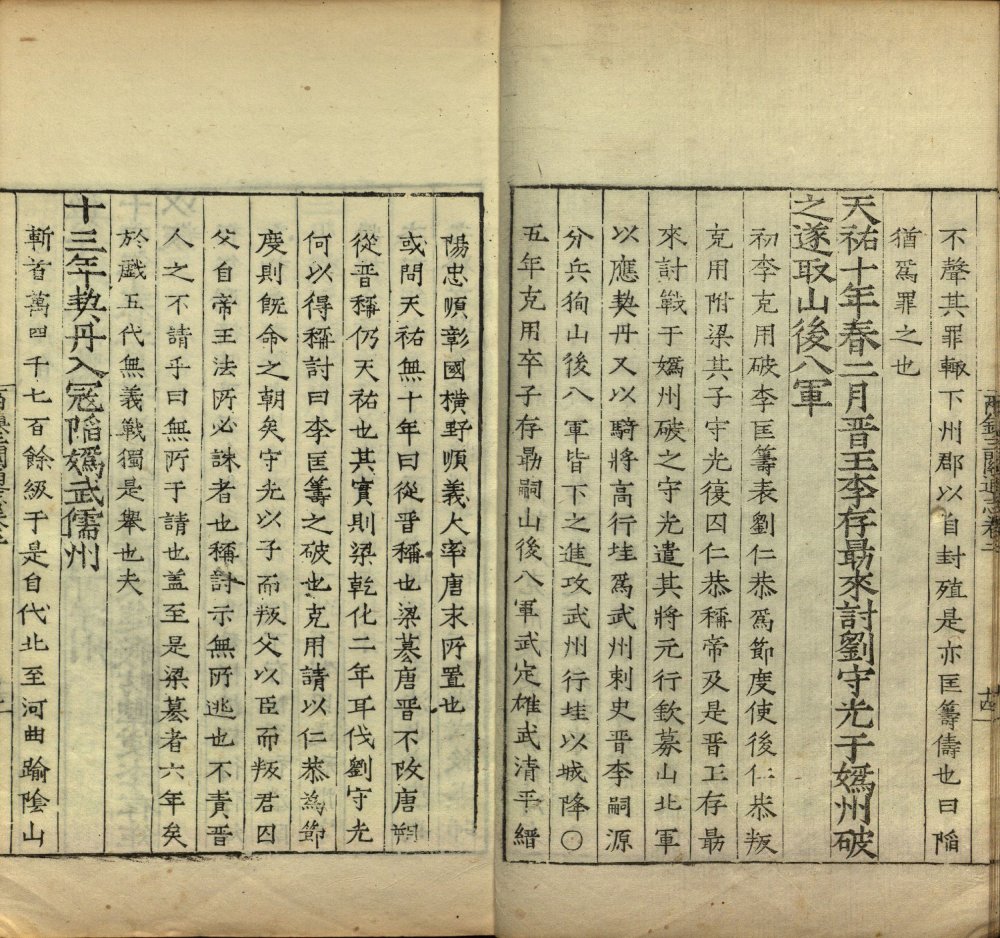 不聲其罪輙下州郡以自封殖是亦匡籌儔也曰䧟
猶爲罪之也
天祐十年春二月晉王李存朂來討劉守光于嬀州破
之遂取山後八軍
初李克用破李匡籌表劉仁恭爲節度使後仁恭叛
克用附梁其子守光復囚仁恭稱帝及是晉王存朂
來討戰于嬀州破之守光遣其將元行欽募山北軍
以應契丹又以騎將高行珪爲武州刺史晉李嗣源
分兵狥山後八軍皆下之進攻武州行珪以城降〇
五年克用卒子存朂嗣山後八軍武定雄武清平縉
陽忠順彰國橫野順義大率唐末所置也
或問天祐無十年曰從晉稱也梁簒唐晉不改唐朔
從晉稱仍天祐也其實則梁乾化二年耳伐劉守光
何以得稱討曰李匡籌之破也克用請以仁恭為節
度則旣命之朝矣守光以子而叛父以臣而叛君囚
父自帝王法所必誅者也稱討示無所逃也不責晉
人之不請乎曰無所于請也蓋至是梁簒者六年矣
於戲五代無義戰獨是舉也夫
十三年契丹入寇䧟嬀武儒州
斬首萬四千七百餘級于是自代北至河曲踰陰山